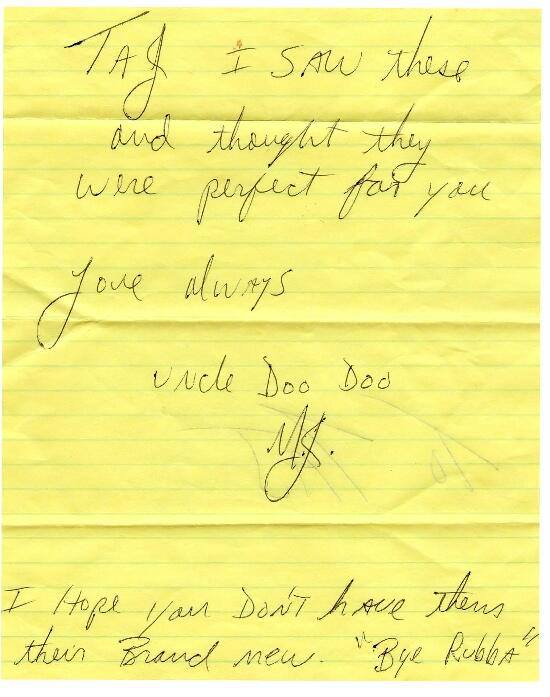 TAJ I SAW these
and thought they
were perfect for you
Love always
Uncle Doo Doo
M.J.
I Hope you DON'T have them
their Brand new. "Bye Rubba"